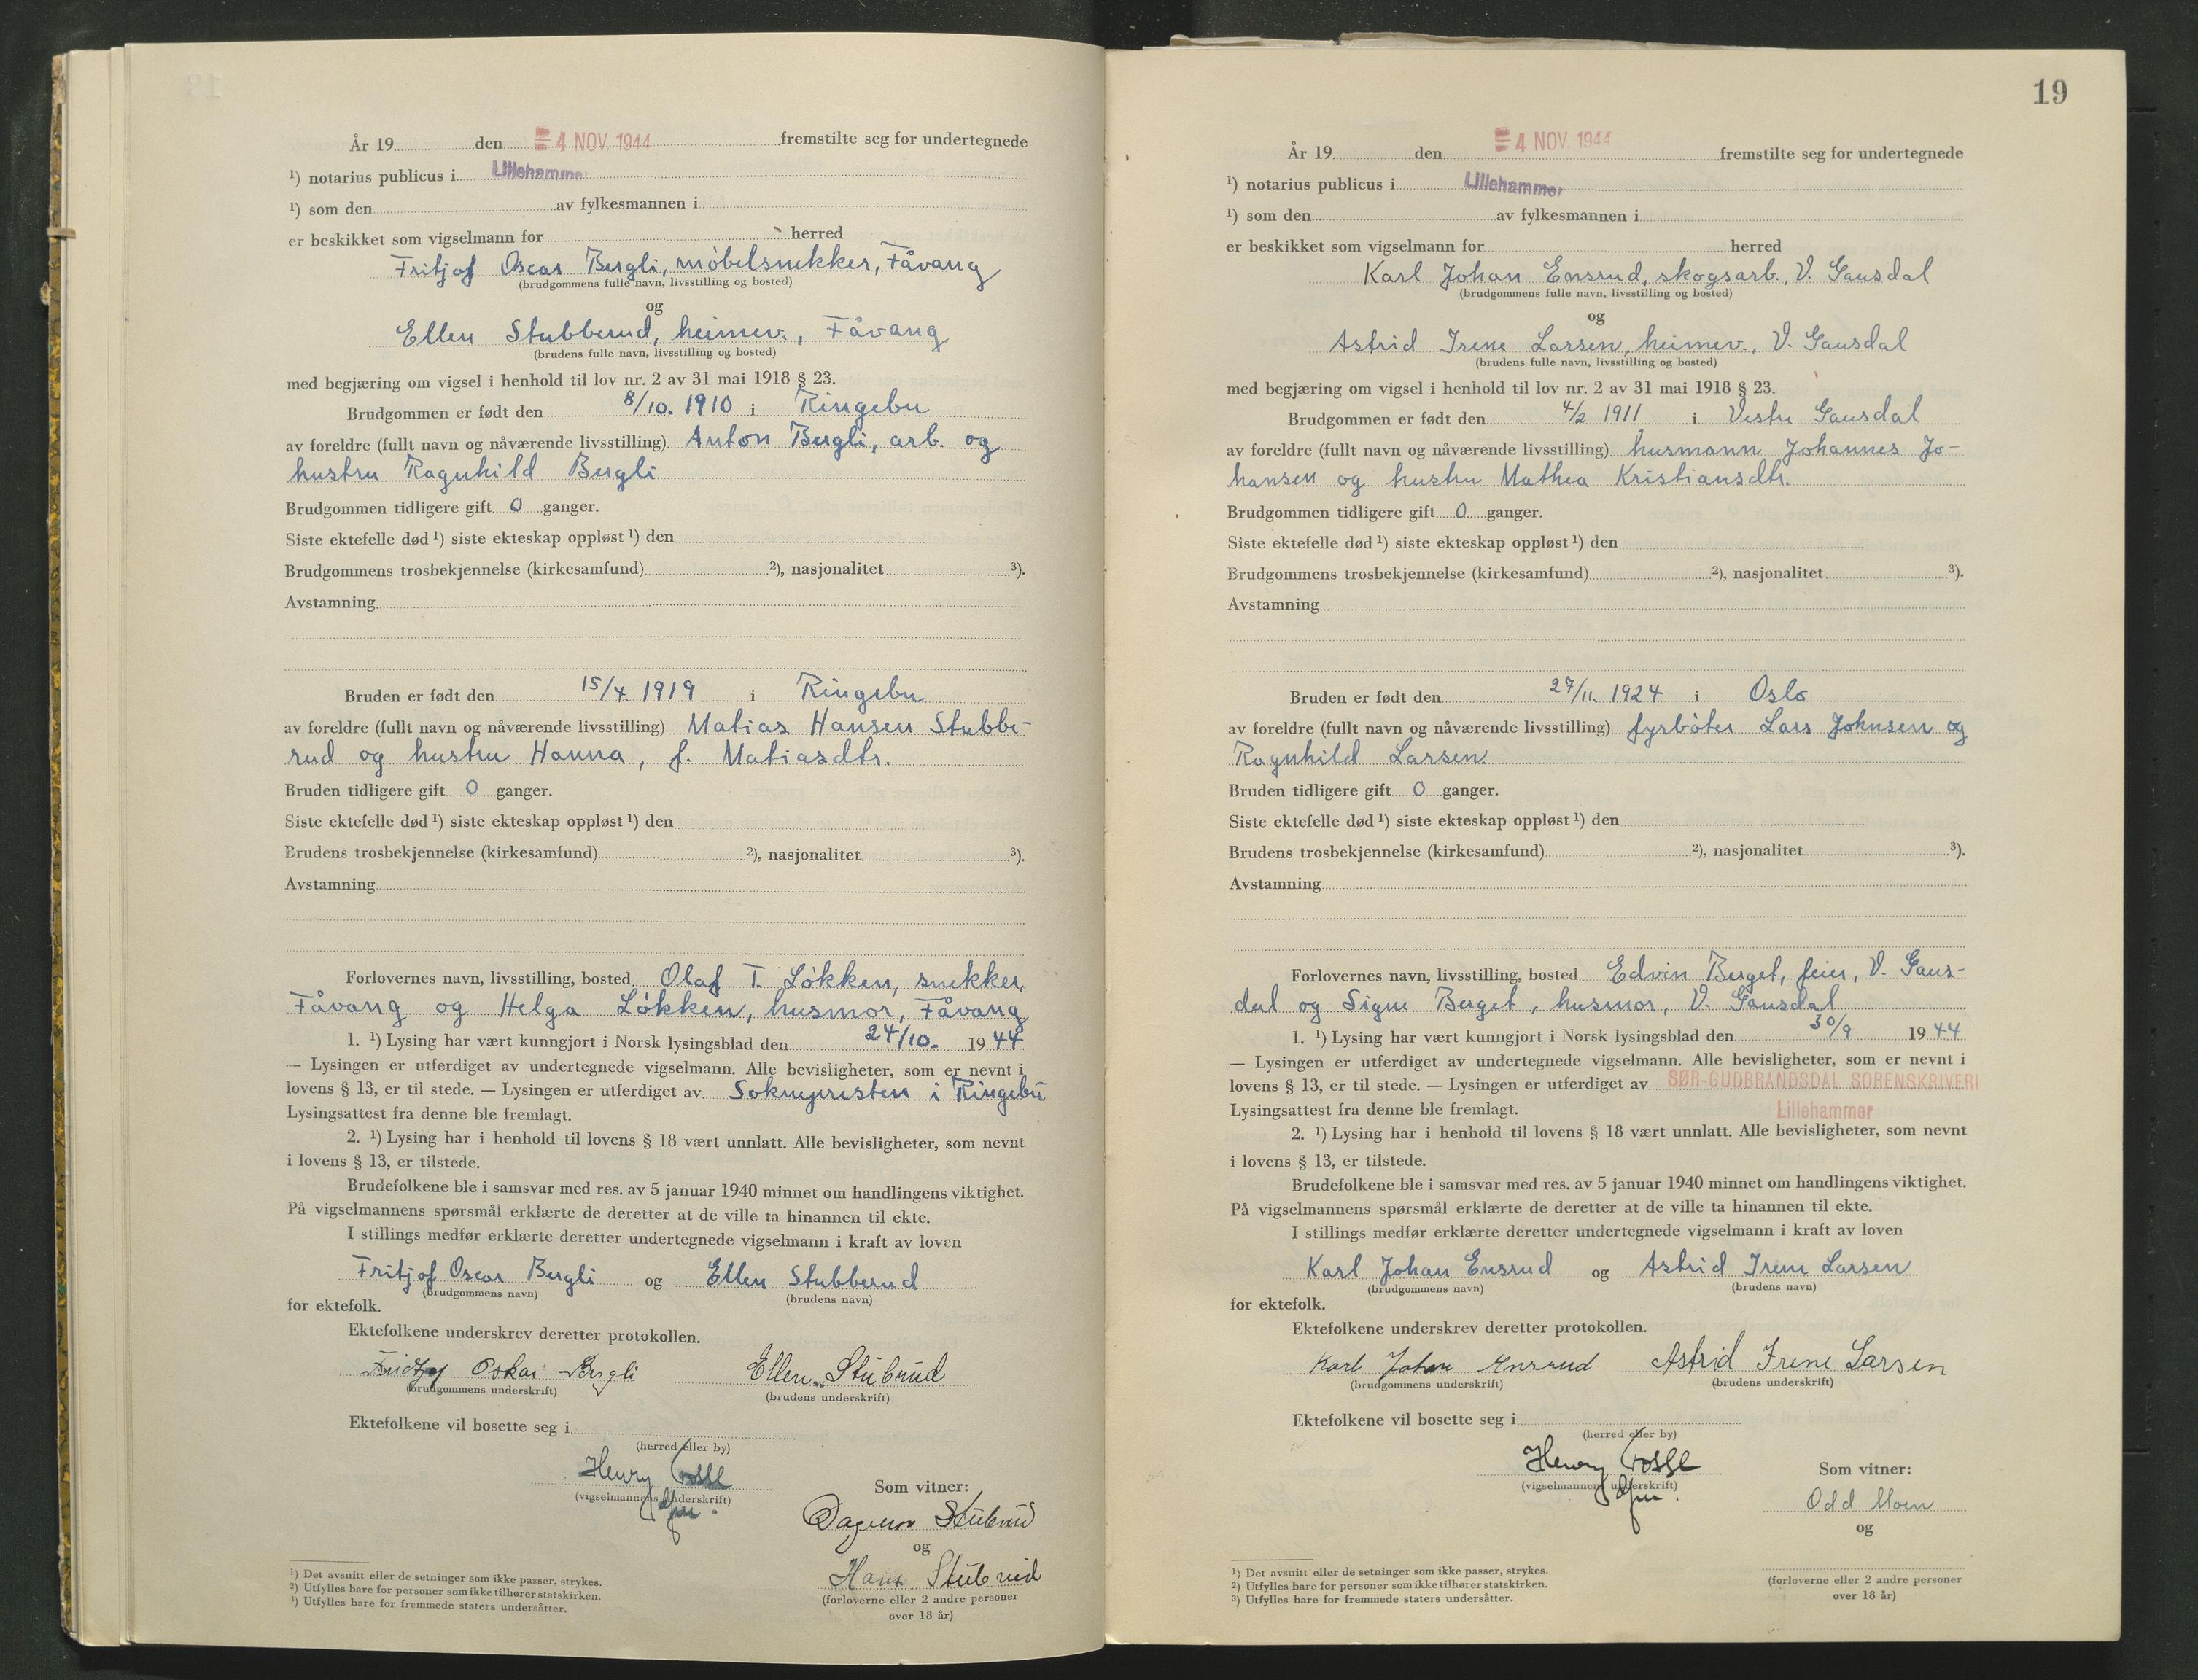 År 19 den = 4 NOV. 1944 fremstilte seg for undertegnede
¹) notarius publicus i Lillehammer
¹) som den av fylkesmannen i
er beskikket som vigselmann for herred
Fritjof Oscar Bergli, møbelsnekker, Fåvang
(brudgommens fulle navn, livsstilling og bosted)
og
Ellen Stubberud, heimev., Fåvang
(brudens fulle navn, livsstilling og bosted)
med begjæring om vigsel i henhold til lov nr. 2 av 31 mai 1918 § 23.
Brudgommen er født den 8/10. 1910 i Ringebu
av foreldre (fullt navn og nåværende livsstilling) Anton Bergli, arb. og
hustru Ragnhild Bergli
Brudgommen tidligere gift 0 ganger.
Siste ektefelle død ¹) siste ekteskap oppløst ¹) den
Brudgommens trosbekjennelse (kirkesamfund) ²), nasjonalitet ³).
Avstamning
Bruden er født den 15/4. 1919 i Ringebu
av foreldre (fullt navn og nåværende livsstilling) Matias Hansen Stubbe-
rud og hustru Hanna, f. Matiasdtr.
Bruden tidligere gift 0 ganger.
Siste ektefelle død ¹) siste ekteskap oppløst ¹) den
Brudens trosbekjennelse (kirkesamfund) ²), nasjonalitet ³).
Avstamning
Forlovernes navn, livsstilling, bosted Olaf T. Løkken, snekker,
Fåvang og Helga Løkken, husmor, Fåvang
1. ¹) Lysing har vært kunngjort i Norsk lysingsblad den 24/10. 1944
— Lysingen er utferdiget av undertegnede vigselmann. Alle bevisligheter, som er nevnt i
lovens § 13, er til stede. — Lysingen er utferdiget av Soknepresten i Ringebu
Lysingsattest fra denne ble fremlagt.
2. ¹) Lysing har i henhold til lovens § 18 vært unnlatt. Alle bevisligheter, som nevnt
i lovens § 13, er tilstede.
Brudefolkene ble i samsvar med res. av 5 januar 1940 minnet om handlingens viktighet.
På vigselmannens spørsmål erklærte de deretter at de ville ta hinannen til ekte.
I stillings medfør erklærte deretter undertegnede vigselmann i kraft av loven
Fritjof Oscar Bergli og Ellen Stubberud
(brudgommens navn) (brudens navn)
for ektefolk.
Ektefolkene underskrev deretter protokollen.
Oskar Bergli Ellen Stubrud
(brudgommens underskrift) (brudens underskrift)
Ektefolkene vil bosette seg i
(herred eller by)
Henry
(vigselmannens underskrift)
Som vitner:
Dagmar Stubrud
og
Hans Stubrud
(forloverne eller 2 andre personer
over 18 år)
¹) Det avsnitt eller de setninger som ikke passer, strykes.
²) Utfylles bare for personer som ikke tilhører statskirken.
³) Utfylles bare for fremmede staters undersåtter.
19
År 19 den = 4 NOV. 1944 fremstilte seg for undertegnede
¹) notarius publicus i Lillehammer
¹) som den av fylkesmannen i
er beskikket som vigselmann for herred
Karl Johan Ensrud, skogsarb., V. Gausdal
(brudgommens fulle navn, livsstilling og bosted)
og
Astrid Irene Larsen, heimev., V. Gausdal
(brudens fulle navn, livsstilling og bosted)
med begjæring om vigsel i henhold til lov nr. 2 av 31 mai 1918 § 23.
Brudgommen er født den 4/2 1911 i Vestre Gausdal
av foreldre (fullt navn og nåværende livsstilling) husmann Johannes Jo-
hansen og hustru Mathea Kristiansdtr.
Brudgommen tidligere gift 0 ganger.
Siste ektefelle død ¹) siste ekteskap oppløst ¹) den
Brudgommens trosbekjennelse (kirkesamfund) ²), nasjonalitet ³).
Avstamning
Bruden er født den 27/11. 1924 i Oslo
av foreldre (fullt navn og nåværende livsstilling) fyrbøter Lars Johnsen og
Ragnhild Larsen
Bruden tidligere gift 0 ganger.
Siste ektefelle død ¹) siste ekteskap oppløst ¹) den
Brudens trosbekjennelse (kirkesamfund) ²), nasjonalitet ³).
Avstamning
Forlovernes navn, livsstilling, bosted Edvin Berget, feier, V. Gaus-
dal og Signe Berget, husmor, V. Gausdal
1. ¹) Lysing har vært kunngjort i Norsk lysingsblad den 30/9 1944
— Lysingen er utferdiget av undertegnede vigselmann. Alle bevisligheter, som er nevnt i
lovens § 13, er til stede. — Lysingen er utferdiget av SØR-GUDBRANDSDAL SORENSKRIVERI
Lysingsattest fra denne ble fremlagt. Lillehammer
2. ¹) Lysing har i henhold til lovens § 18 vært unnlatt. Alle bevisligheter, som nevnt
i lovens § 13, er tilstede.
Brudefolkene ble i samsvar med res. av 5 januar 1940 minnet om handlingens viktighet.
På vigselmannens spørsmål erklærte de deretter at de ville ta hinannen til ekte.
I stillings medfør erklærte deretter undertegnede vigselmann i kraft av loven
Karl Johan Ensrud og Astrid Irene Larsen
(brudgommens navn) (brudens navn)
for ektefolk.
Ektefolkene underskrev deretter protokollen.
Karl Johan Ensrud Astrid Irene Larsen
(brudgommens underskrift) (brudens underskrift)
Ektefolkene vil bosette seg i
(herred eller by)
Henry
(vigselmannens underskrift)
Som vitner:
Odd Moen
og
(forloverne eller 2 andre personer
over 18 år)
¹) Det avsnitt eller de setninger som ikke passer, strykes.
²) Utfylles bare for personer som ikke tilhører statskirken.
³) Utfylles bare for fremmede staters undersåtter.